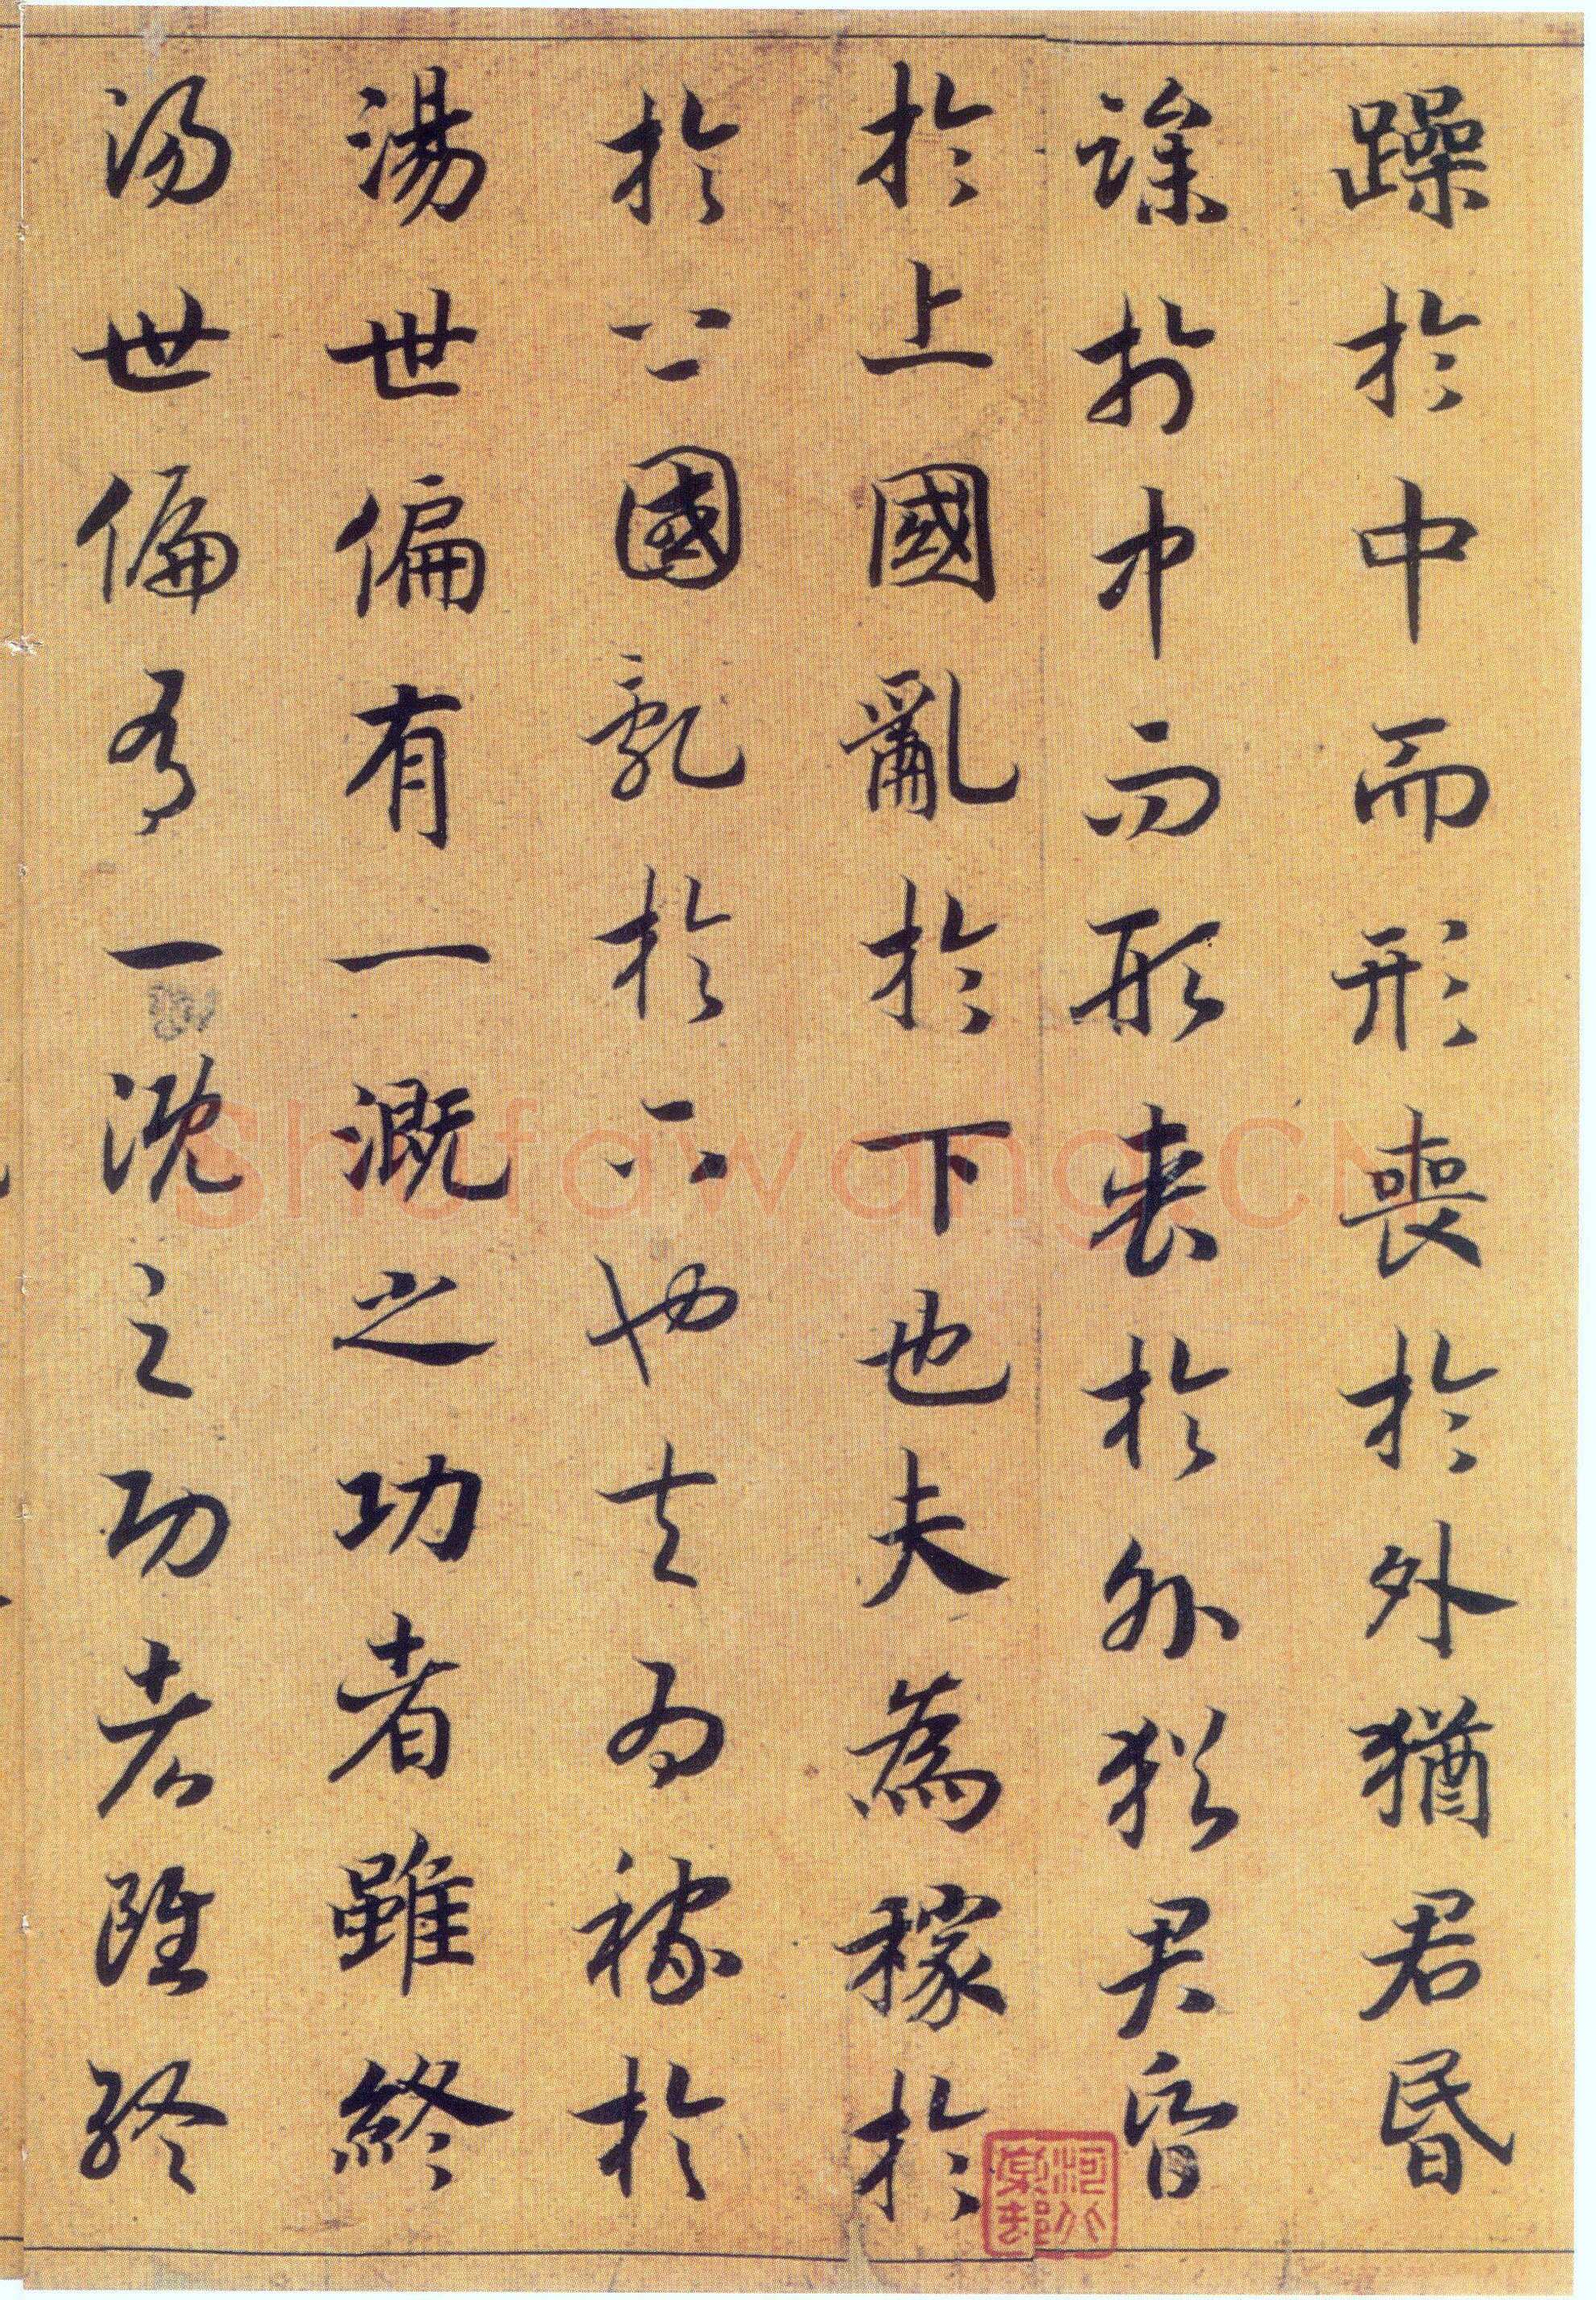 躁於中而形喪於外猶君昏
躁於中而形喪於外猶君昏
於上國亂於下也夫為稼於
於上國亂於下也夫為稼於
湯世偏有一溉之功者雖終
湯世偏有一溉之功者雖終
Shufawang.CN